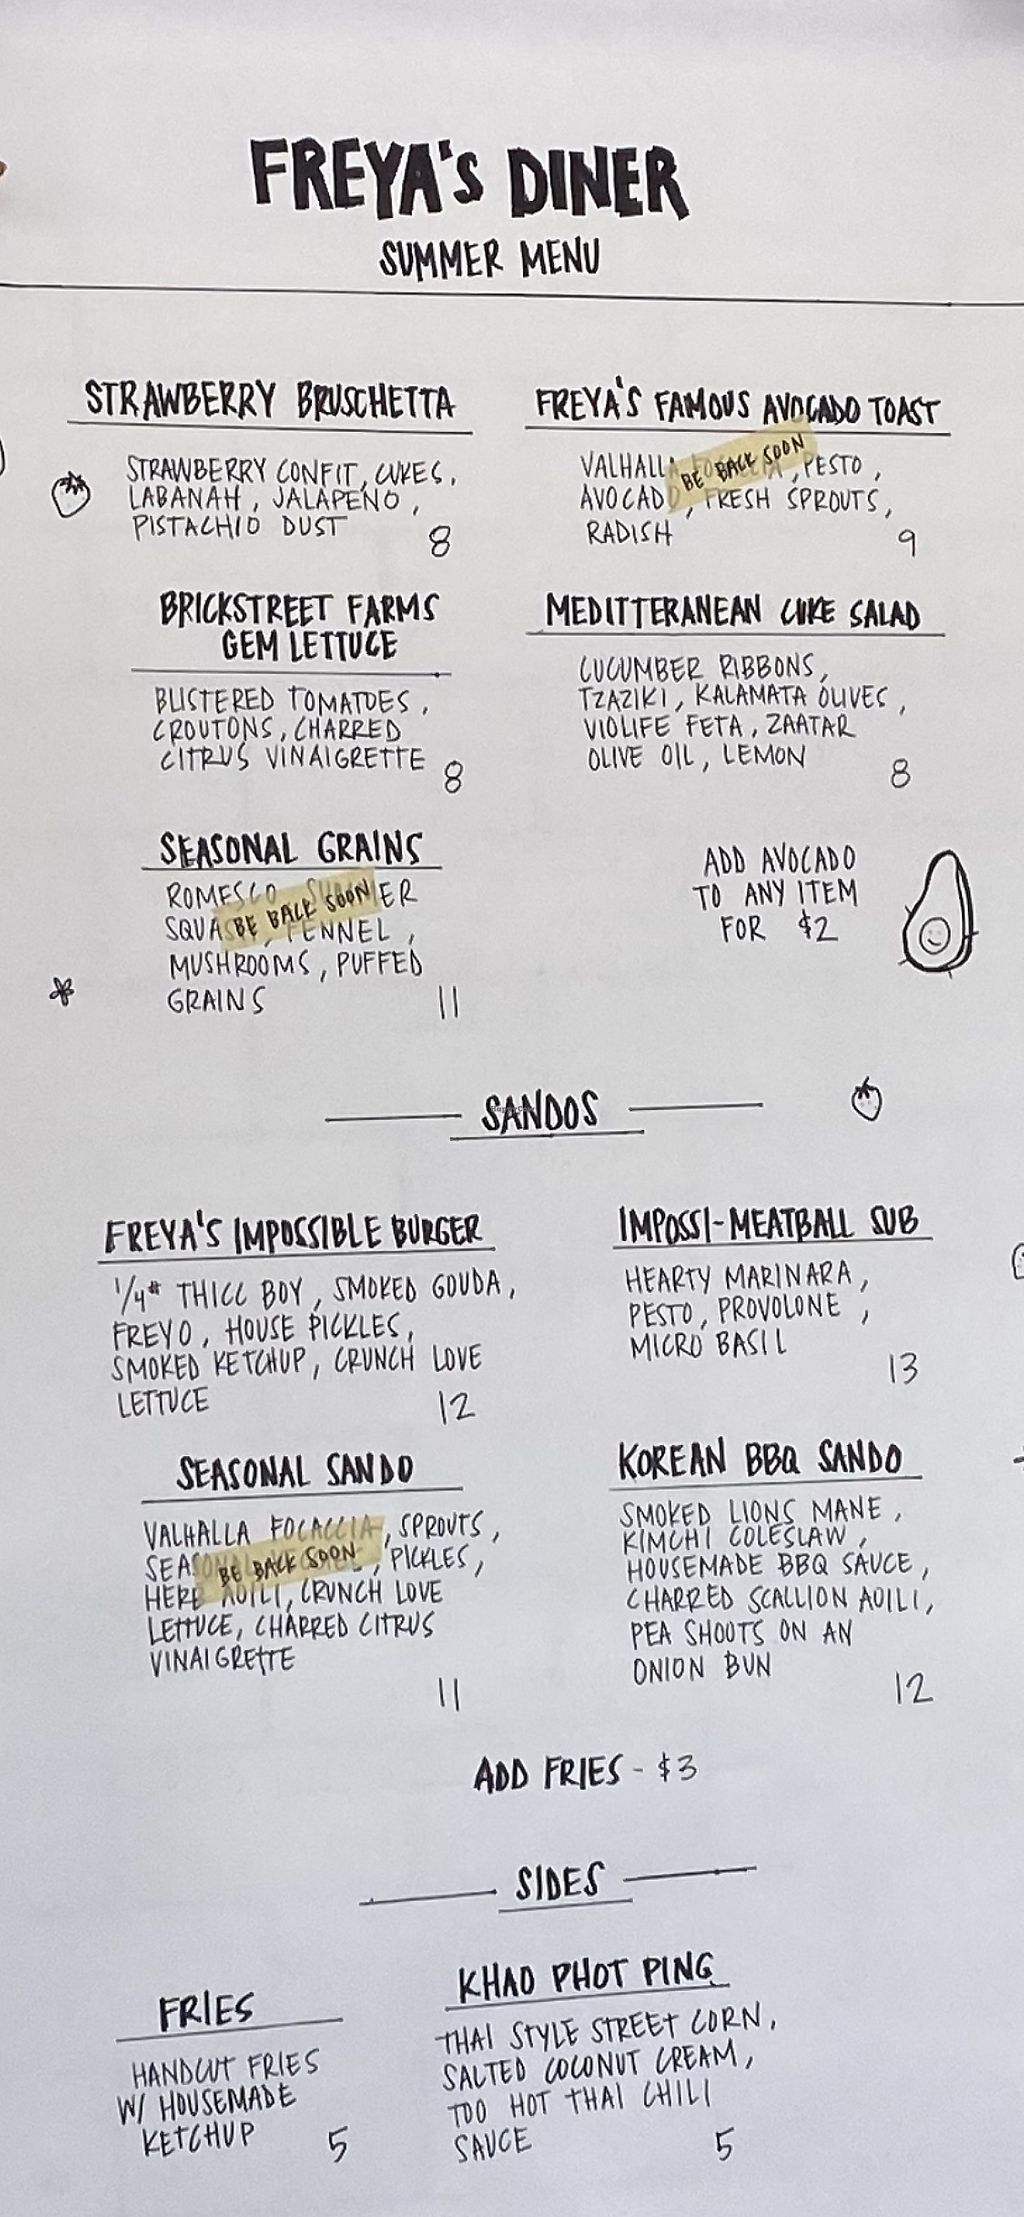 FREYA'S DINER
SUMMER MENU
STRAWBERRY BRUSCHETTA
STRAWBERRY CONFIT, CUKES,
LABANAH, JALAPEÑO,
PISTACHIO DUST
8
FREYA'S FAMOUS AVOCADO TOAST
BE BACK SOON
VALHALLA , PESTO,
AVOCADO, FRESH SPROUTS,
RADISH
9
BRICKSTREET FARMS
GEM LETTUCE
BLISTERED TOMATOES,
CROUTONS, CHARRED
CITRUS VINAIGRETTE
8
MEDITTERANEAN CUKE SALAD
CUCUMBER RIBBONS,
TZAZIKI, KALAMATA OLIVES,
VIOLIFE FETA, ZAATAR
OLIVE OIL, LEMON
8
SEASONAL GRAINS
ROMESCO, SUMMER
BE BACK SOON
SQUASH, FENNEL,
MUSHROOMS, PUFFED
GRAINS
11
ADD AVOCADO
TO ANY ITEM
FOR $2
SANDOS
FREYA'S IMPOSSIBLE BURGER
1/4# THICC BOY, SMOKED GOUDA,
FREYO, HOUSE PICKLES,
SMOKED KETCHUP, CRUNCH LOVE
LETTUCE
12
IMPOSSI-MEATBALL SUB
HEARTY MARINARA,
PESTO, PROVOLONE,
MICRO BASIL
13
SEASONAL SANDO
VALHALLA FOCACCIA, SPROUTS,
BE BACK SOON
, PICKLES,
HERB AOILI, CRUNCH LOVE
LETTUCE, CHARRED CITRUS
VINAIGRETTE
11
KOREAN BBQ SANDO
SMOKED LIONS MANE,
KIMCHI COLESLAW,
HOUSEMADE BBQ SAUCE,
CHARRED SCALLION AOILI,
PEA SHOOTS ON AN
ONION BUN
12
ADD FRIES - $3
SIDES
FRIES
HANDCUT FRIES
W/ HOUSEMADE
KETCHUP
5
KHAO PHOT PING
THAI STYLE STREET CORN,
SALTED COCONUT CREAM,
TOO HOT THAI CHILI
SAUCE
5